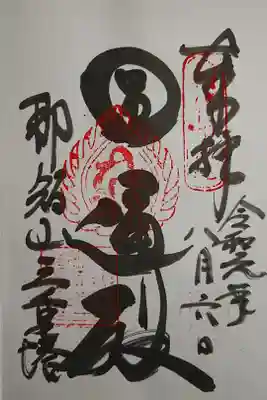 奉拝
令和元年
八月六日
圓通殿
那智山三重塔